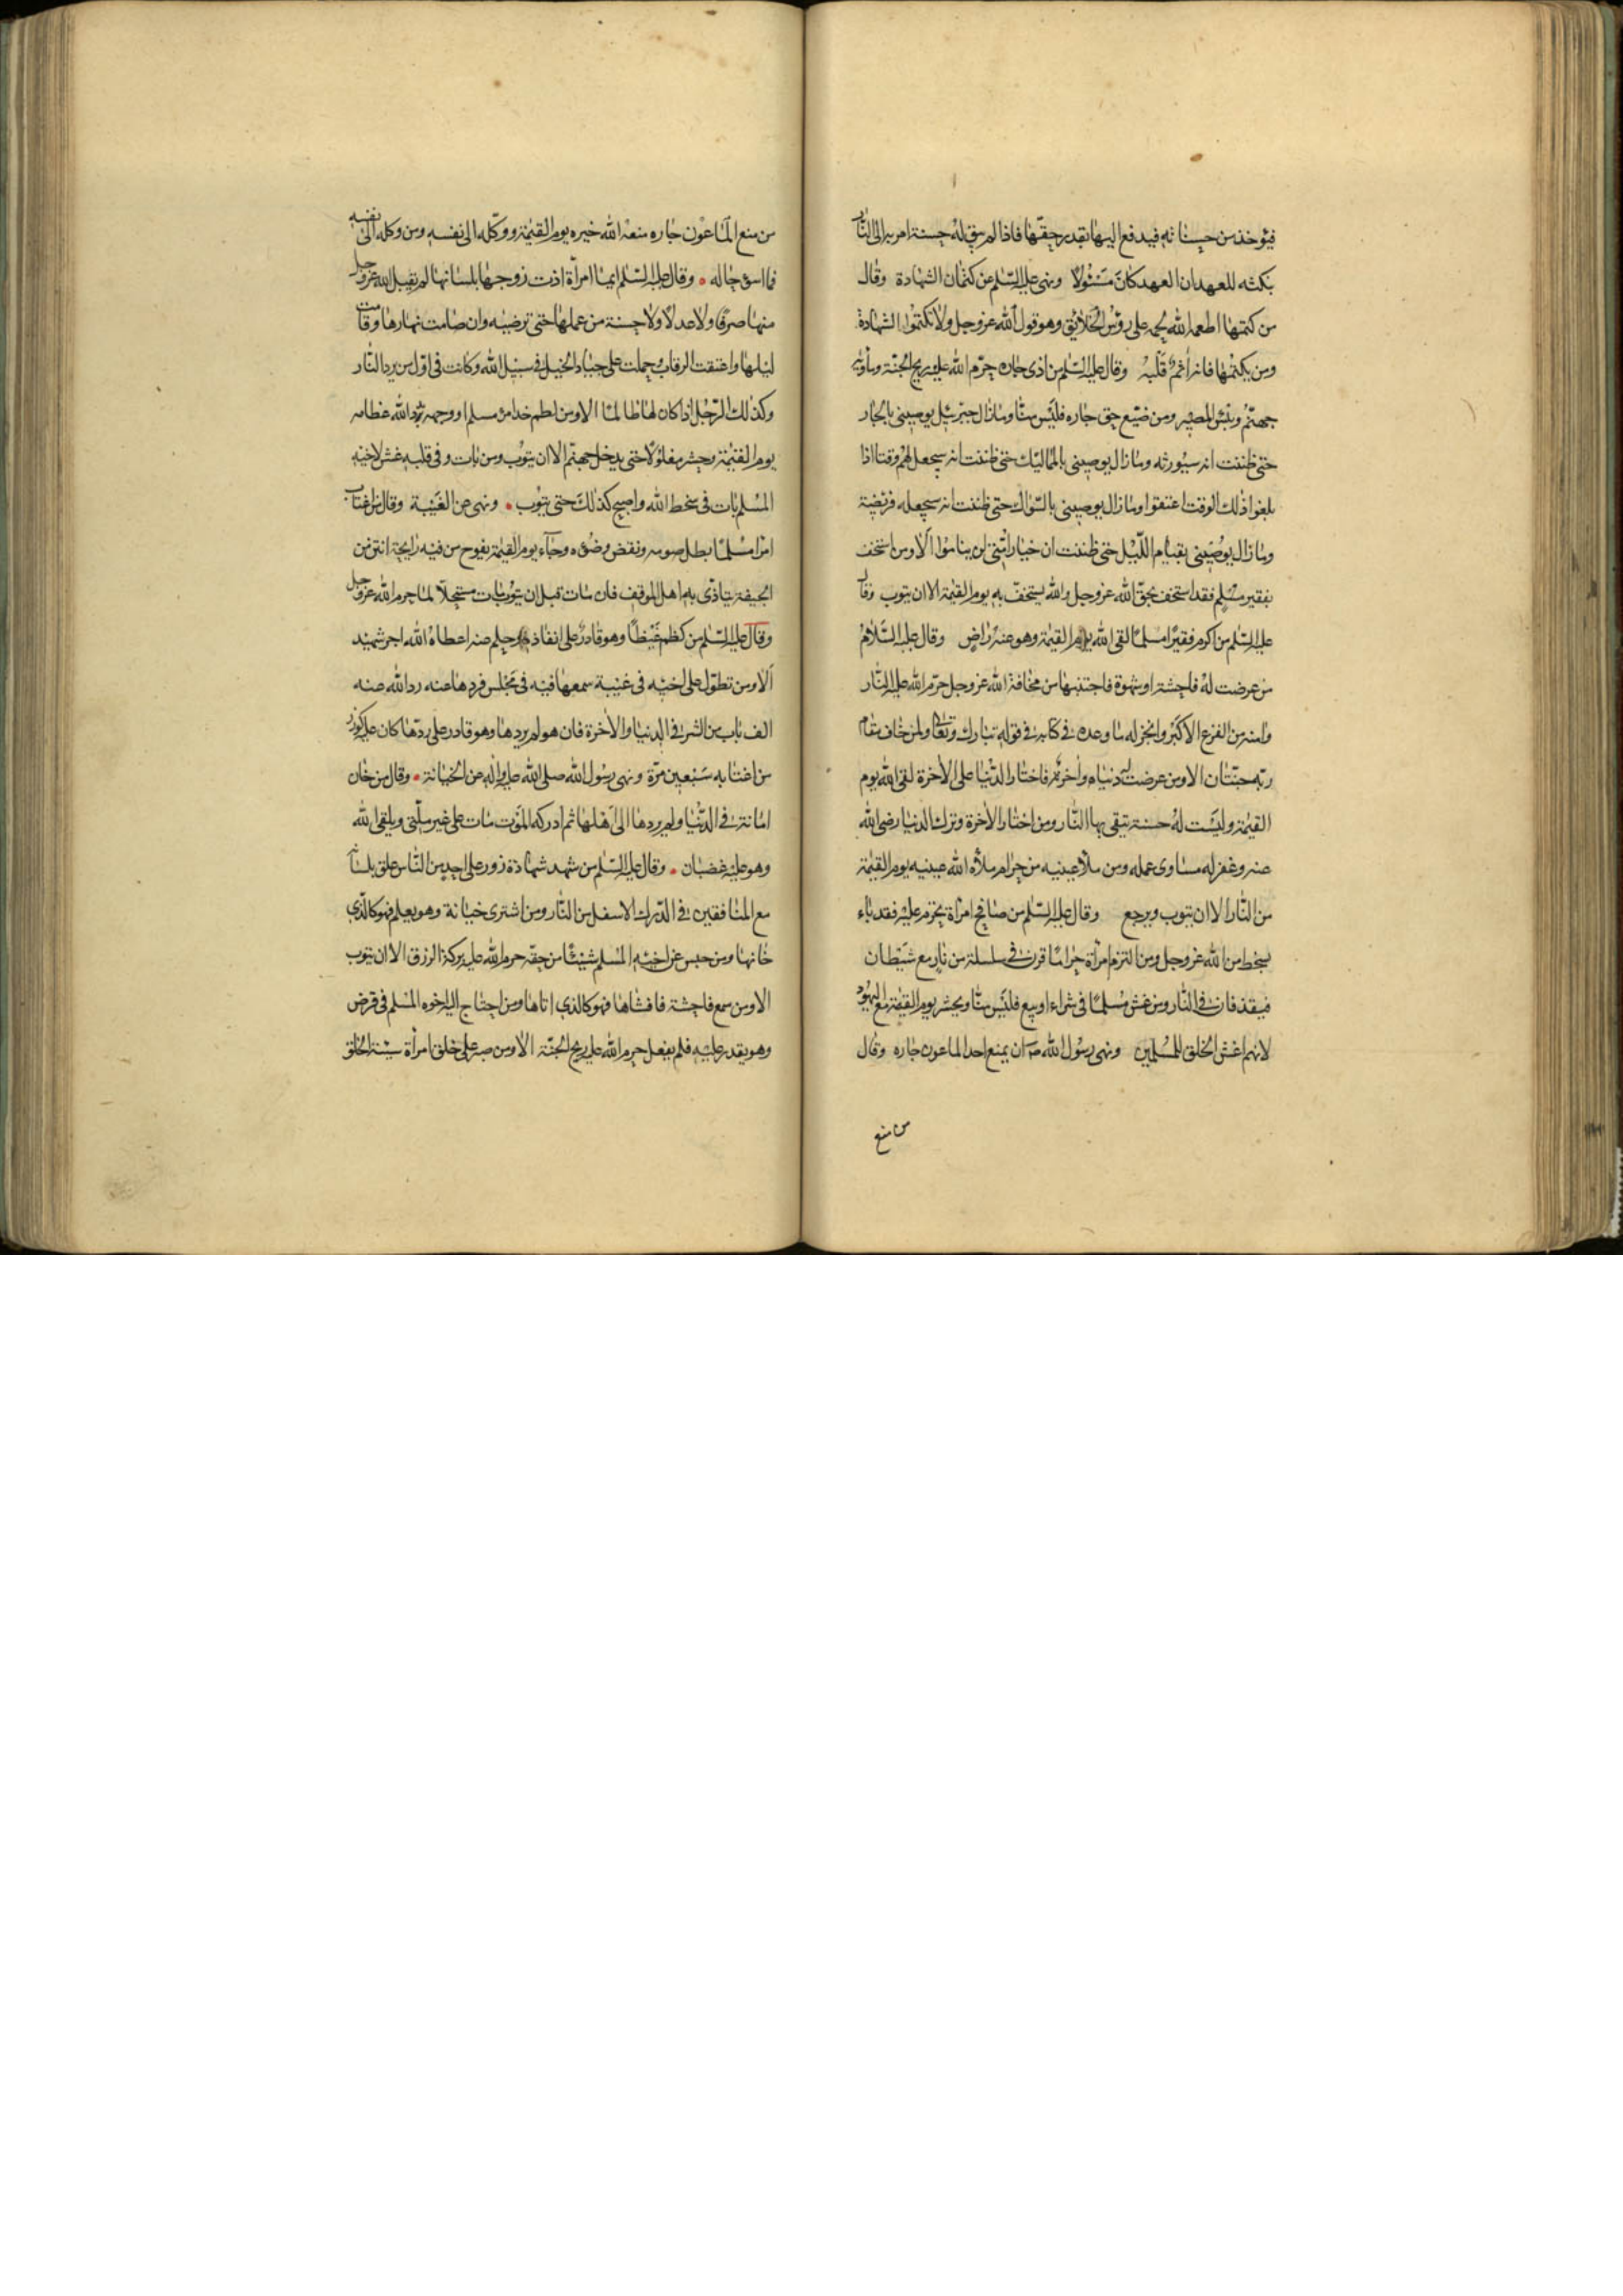 فيؤخذ من حسناته فيدفع اليها بقدر حقها فاذا لم يبق له حسنة امر به الى النار
بنكثه للعهد ان العهد كان مسئولا ونهى عليه السلم عن كتمان الشهادة وقال
من كتمها اطعمه الله لحمه على رؤس الخلائق وهو قول الله عز وجل ولا تكتموا الشهادة
ومن يكتمها فانه أثم قلبه وقال عليه السلم من اذى جاره حرم الله عليه ريح الجنة ومأويه
جهنم وبئس المصير ومن ضيع حق جاره فليس منا وما زال جبرئيل يوصيني بالجار
حتى ظننت انه سيورثه وما زال يوصيني بالمماليك حتى ظننت انه سيجعل لهم وقتا اذا
بلغوا ذلك الوقت اعتقوا وما زال يوصيني بالسواك حتى ظننت انه سيجعله فريضة
وما زال يوصيني بقيام الليل حتى ظننت ان خيار امتي لن يناموا الا ومن استخف
بفقير مسلم فقد استخف بحق الله عز وجل والله يستخف به يوم القيمة الا ان يتوب وقال
عليه السلم من اكرم فقيرا مسلما لقى الله يوم القيمة وهو عنه راض وقال عليه السلام
من عرضت له فاحشة او شهوة فاجتنبها من مخافة الله عز وجل حرم الله عليه النار
وامنه من الفزع الاكبر وانجز له ما وعده في كتابه في قوله تبارك وتعالى ولمن خاف مقام
ربه جنتان الا ومن عرضت له دنياه وأخرته فاختار الدنيا على الأخرة لقى الله يوم
القيمة وليست له حسنة يتقى بها النار ومن اختار الأخرة وترك الدنيا رضى الله
عنه وغفر له مساوى عمله ومن ملأ عينيه من حرام ملأه الله عينيه يوم القيمة
من النار الا ان يتوب ويرجع وقال عليه السلم من صافح امرأة يحرم عليه فقد باء
بسخط من الله عز وجل ومن التزم امرأة حراما قرن في سلسلة من نار مع شيطان
فيقذفان في النار ومن غش مسلما في شراء او بيع فليس منا ويحشر يوم القيمة مع اليهود
لانهم اغش الخلق للمسلمين ونهى رسول الله ص ان يمنع احد الماعون جاره وقال
من منع
من منع الماعون جاره منعه الله خيره يوم القيمة ووكله الى نفسه ومن وكله الى نفسه
فما اسوء حاله وقال عليه السلم ايما امرأة اذت زوجها بلسانها لم يقبل الله عز وجل
منها صرفا ولا عدلا ولا حسنة من عملها حتى ترضيه وان صامت نهارها وقامت
ليلها واعتقت الرقاب وحملت على جياد الخيل في سبيل الله وكانت في اول من يرد النار
وكذلك الرجل اذا كان لها ظالما الا ومن لطم خد امرء مسلم او وجهه بدد الله عظامه
يوم القيمة وحشر مغلولا حتى يدخل جهنم الا ان يتوب ومن بات وفي قلبه غش لاخيه
المسلم بات في سخط الله واصبح كذلك حتى يتوب ونهى عن الغيبة وقال من اغتاب
امرأ مسلما بطل صومه ونقض وضوءه وجاء يوم القيمة يفوح من فيه رايحة انتن من
الجيفة يتاذى به اهل الموقف فان مات قبل ان يتوب مات مستحلا لما حرم الله عز وجل
وقال عليه السلم من كظم غيظا وهو قادر على انفاذه وحلم عنه اعطاه الله اجر شهيد
ألا ومن تطول على اخيه في غيبة سمعها فيه في مجلس فردها عنه رد الله عنه
الف باب من الشر في الدنيا والأخرة فان هو لم يردها وهو قادر على ردها كان عليه كوزر
من اغتابه سبعين مرة ونهى رسول الله صلى الله عليه واله عن الخيانة وقال من خان
امانة في الدنيا ولم يردها الى اهلها ثم ادركه الموت مات على غير ملتي ويلقى الله
وهو عليه غضبان وقال عليه السلم من شهد شهادة زور على احد من الناس علق بلسانه
مع المنافقين في الدرك الاسفل من النار ومن اشترى خيانة وهو يعلم فهو كالذي
خانها ومن حبس عن اخيه المسلم شيئا من حقه حرم الله عليه بركة الرزق الا ان يتوب
الا ومن سمع فاحشة فافشاها فهو كالذي اتاها ومن احتاج اليه اخوه المسلم في قرض
وهو يقدر عليه فلم يفعل حرم الله عليه ريح الجنة الا ومن صبر على خلق امرأة سيئة الخلق